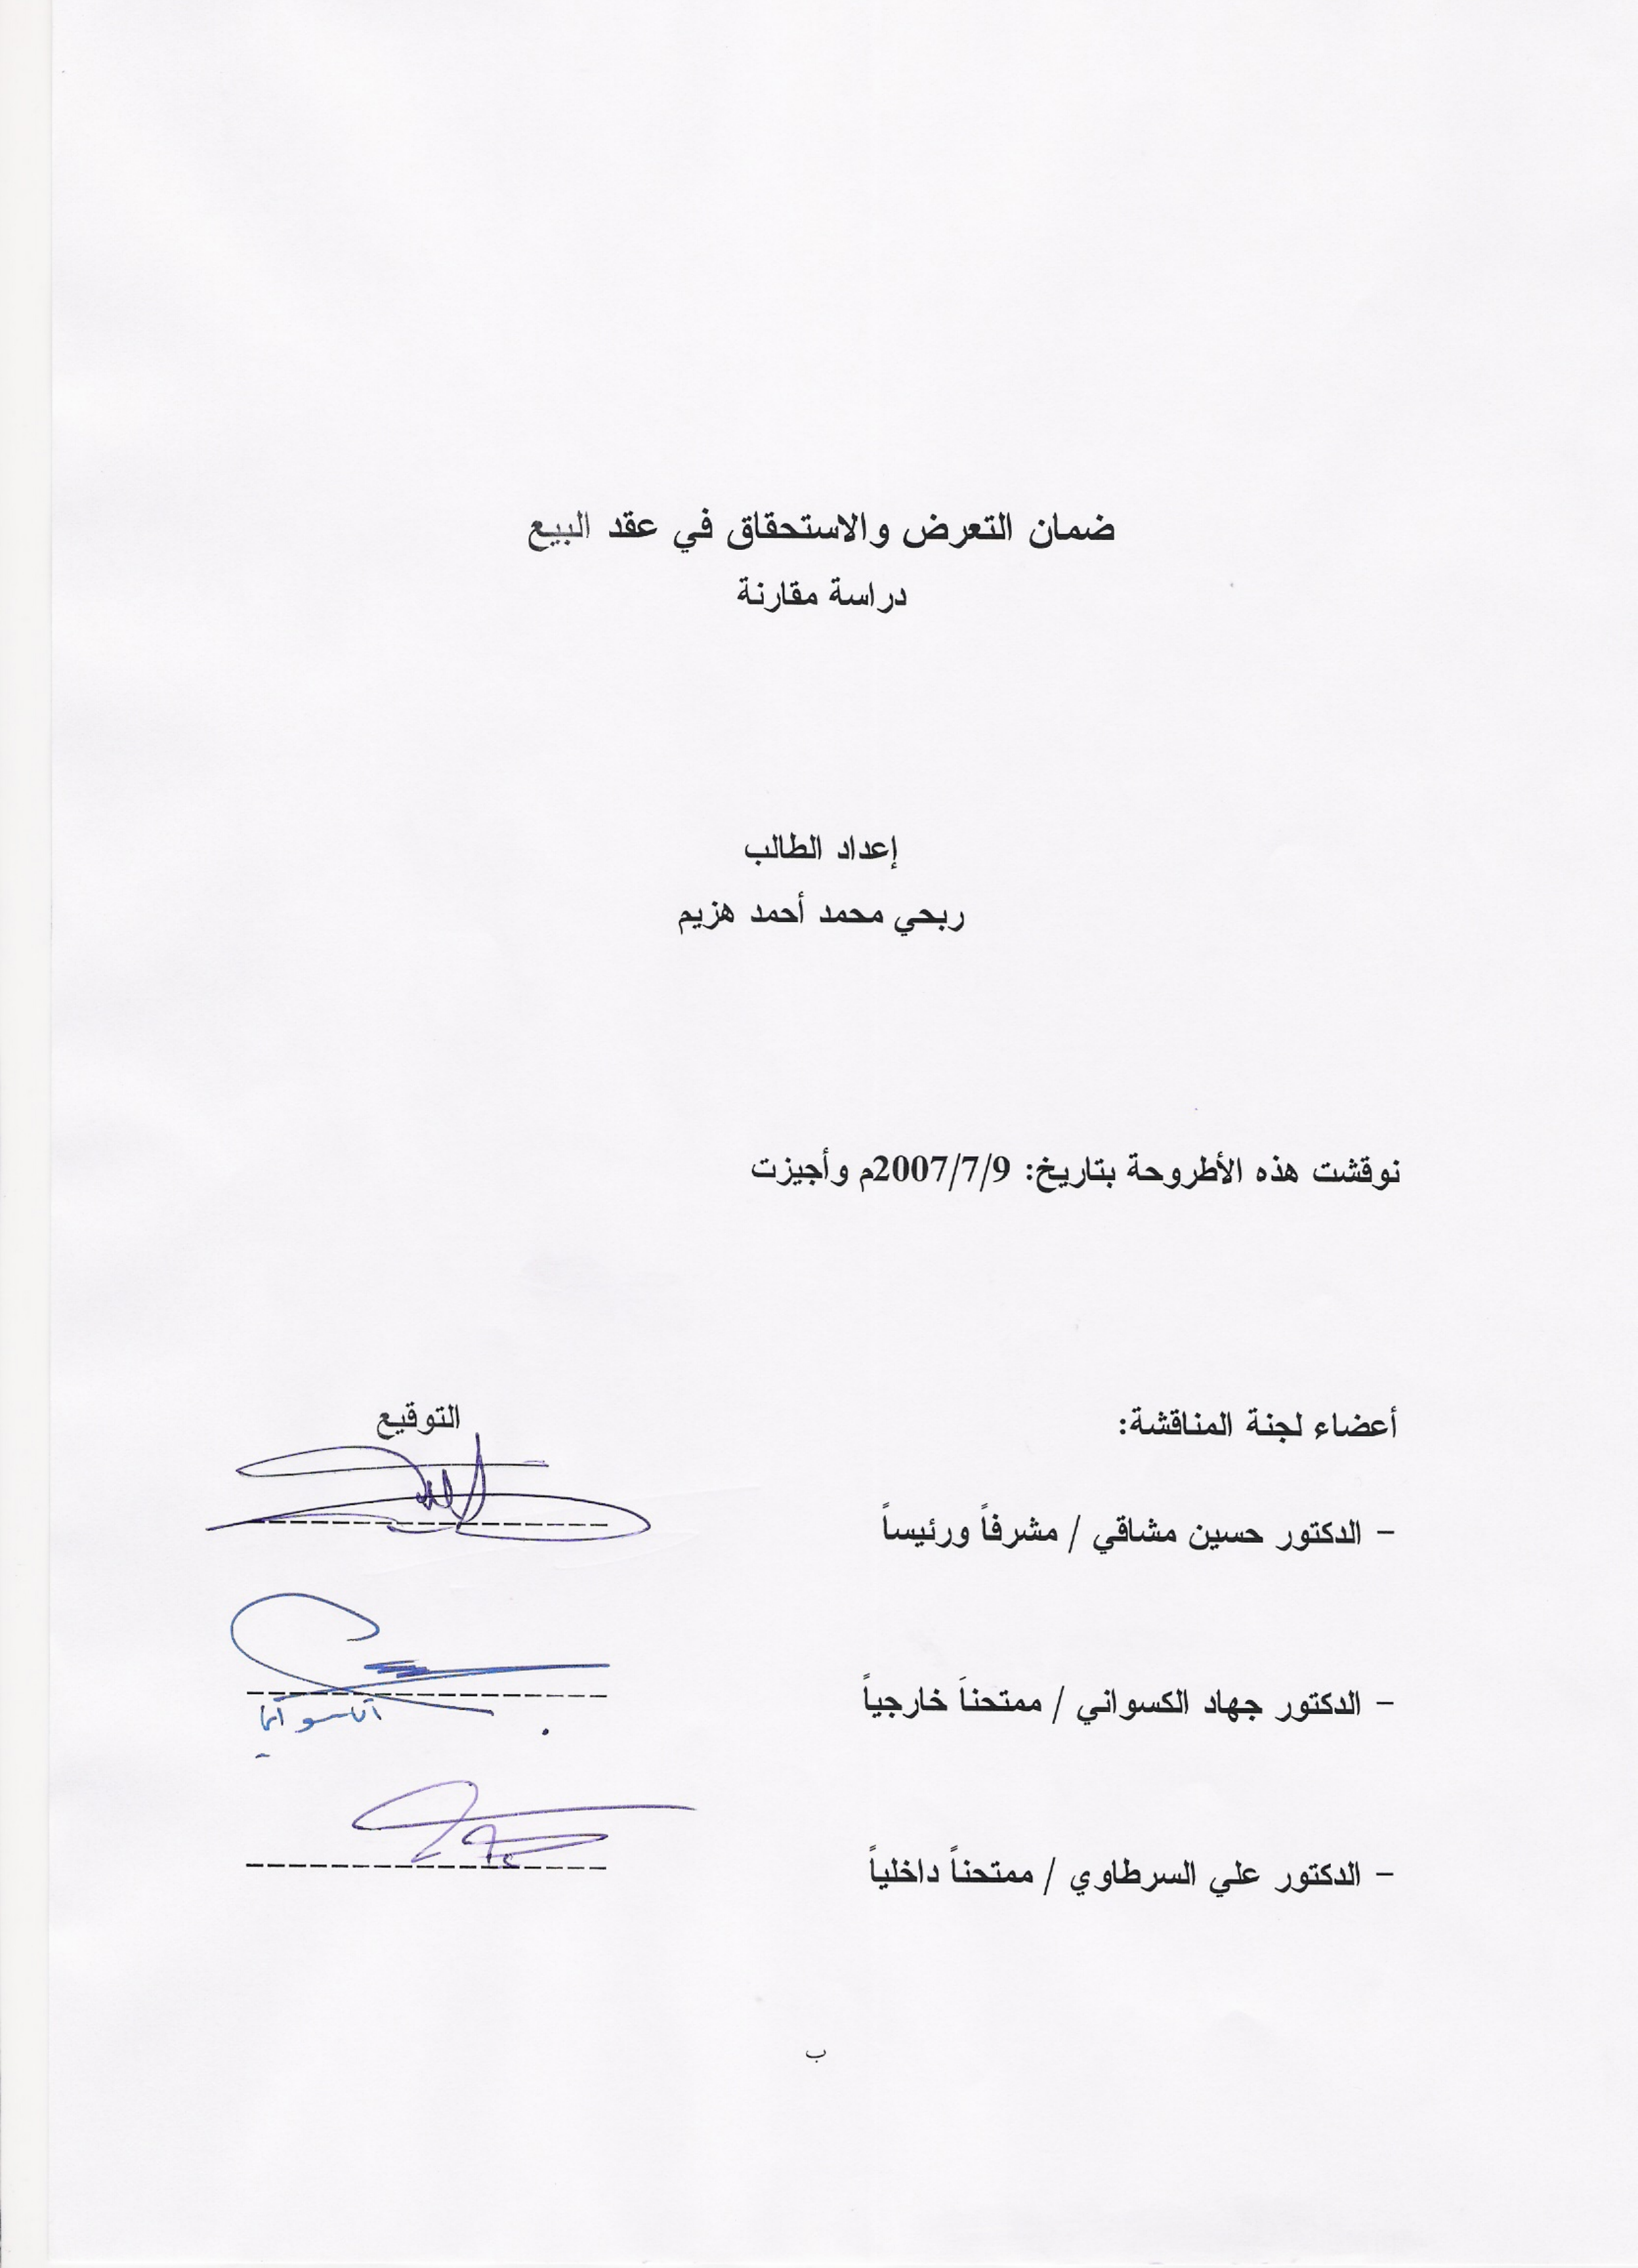 ضمان التعرض والاستحقاق في عقد البيع
دراسة مقارنة
إعداد الطالب
ربحي محمد أحمد هزيم
نوقشت هذه الأطروحة بتاريخ: 2007/7/9م وأجيزت
أعضاء لجنة المناقشة: التوقيع
- الدكتور حسين مشاقي / مشرفاً ورئيساً
- الدكتور جهاد الكسواني / ممتحناَ خارجياً
- الدكتور علي السرطاوي / ممتحناً داخلياً
ب